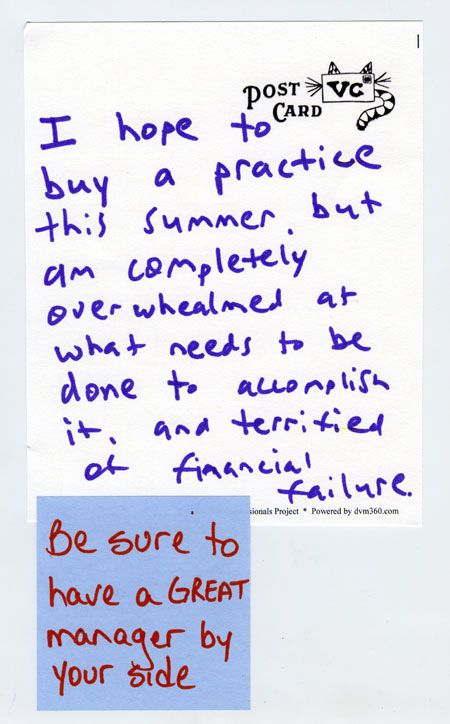 POST
CARD
VC
I hope to
buy a practice
this summer, but
am completely
overwhealmed at
what needs to be
done to accomplish
it, and terrified
of financial
failure.
sionals Project * Powered by dvm360.com
Be sure to
have a GREAT
manager by
your side